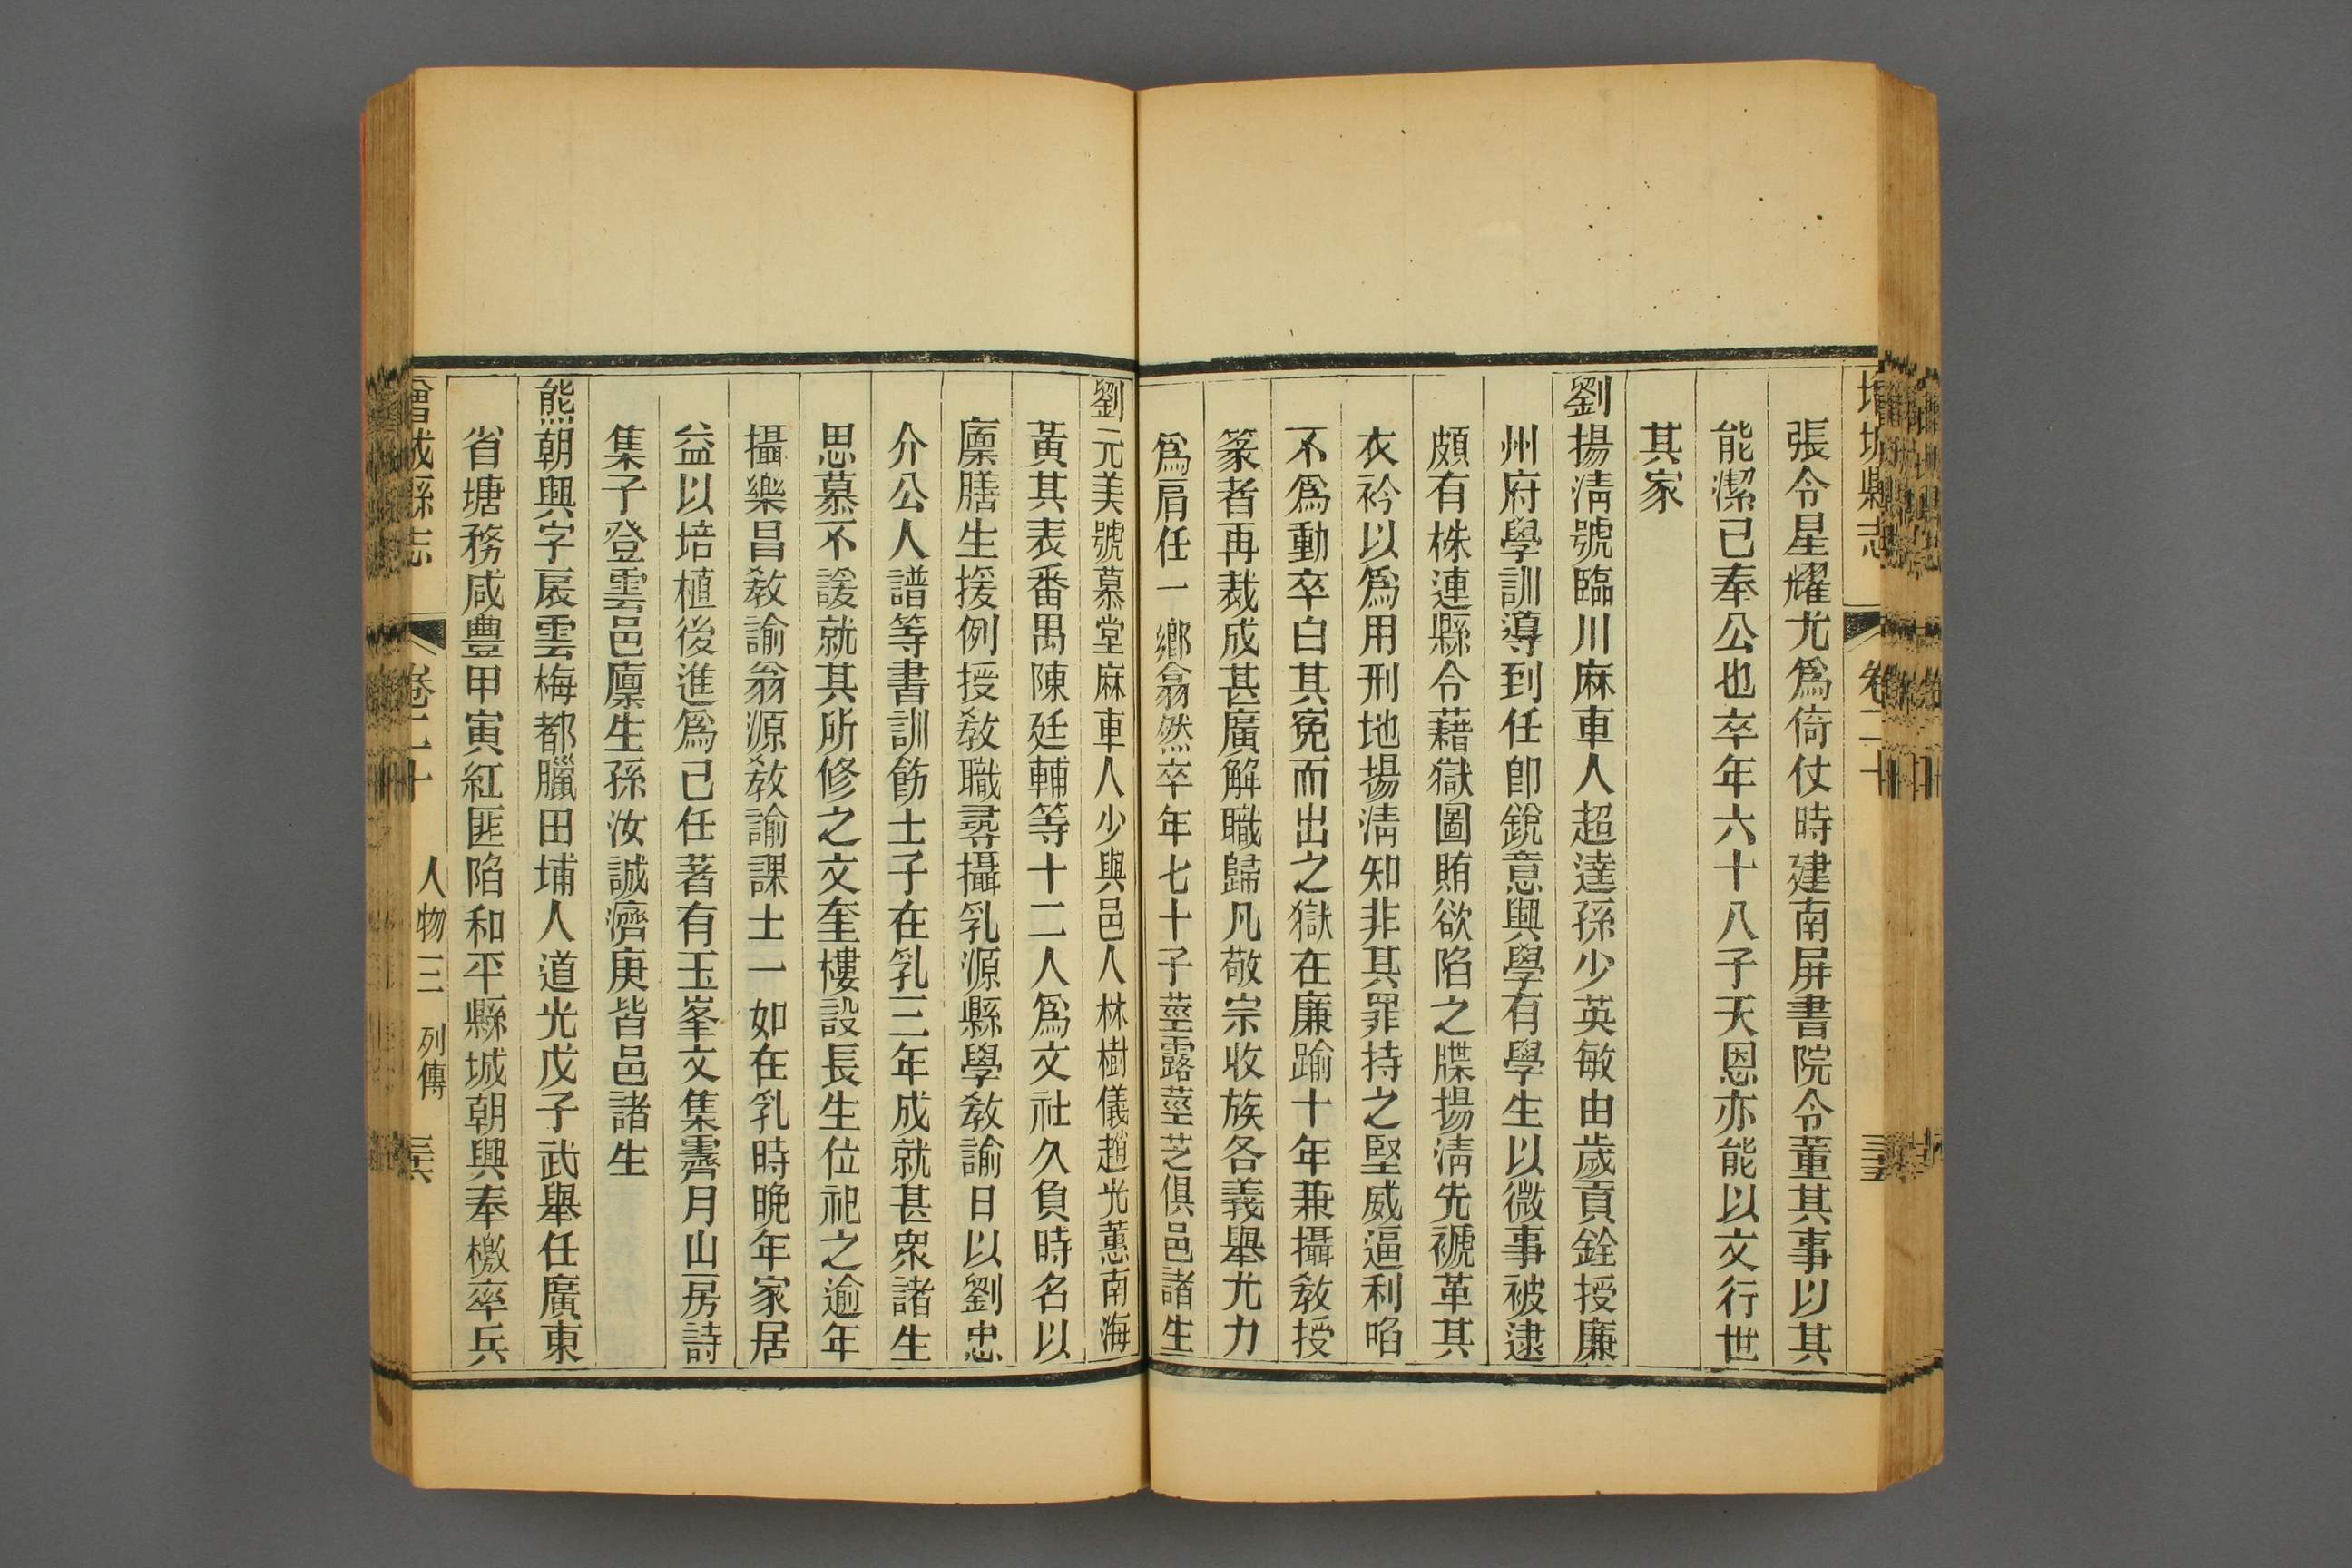 增城縣志
卷二十
三十五
張令星耀尤爲倚仗時建南屏書院令董其事以其
能潔已奉公也卒年六十八子天恩亦能以文行世
其家
劉揚淸號臨川麻車人超達孫少英敏由歲貢銓授廉
州府學訓導到任卽銳意興學有學生以微事被逮
頗有株連縣令藉獄圖賄欲陷之牒揚淸先褫革其
衣衿以爲用刑地揚淸知非其罪持之堅威逼利啗
不爲動卒白其寃而出之獄在廉踰十年兼攝敎授
篆者再裁成甚廣解職歸凡敬宗收族各義舉尤力
爲肩任一鄉翕然卒年七十子莖露莖芝俱邑諸生
劉元美號慕堂麻車人少與邑人林樹儀趙光蕙南海
黃其表番禺陳廷輔等十二人爲文社久負時名以
廩膳生援例授敎職尋攝乳源縣學敎諭日以劉忠
介公人譜等書訓飭士子在乳三年成就甚衆諸生
思慕不諼就其所修之文奎樓設長生位祀之逾年
攝樂昌敎諭翁源敎諭課士一如在乳時晚年家居
益以培植後進爲己任著有玉峯文集霽月山房詩
集子登雲邑廩生孫汝誠濟庚皆邑諸生
熊朝興字扆雲梅都臘田埔人道光戊子武舉任廣東
省塘務咸豐甲寅紅匪陷和平縣城朝興奉檄率兵
曾成縣志
卷二十
人物三
列傳
三十六